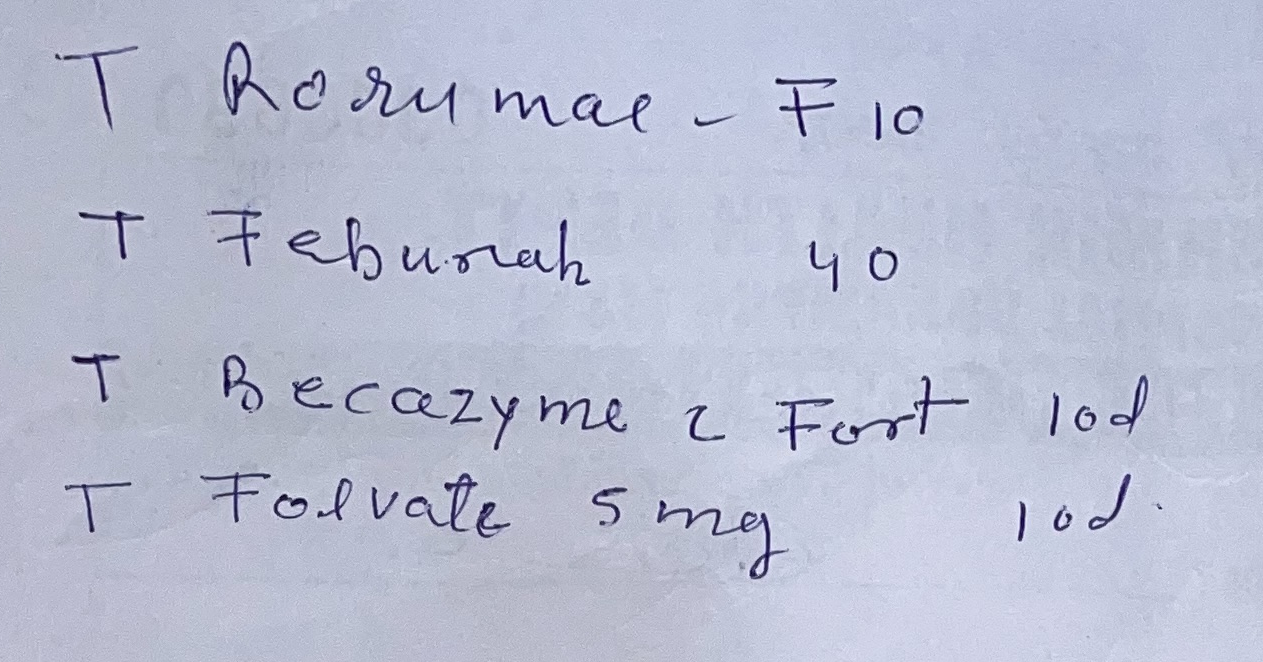 T Rozumae - F 10
T Feburah 40
T Becazyme c Fort 1od
T Folvate 5 mg 1od.